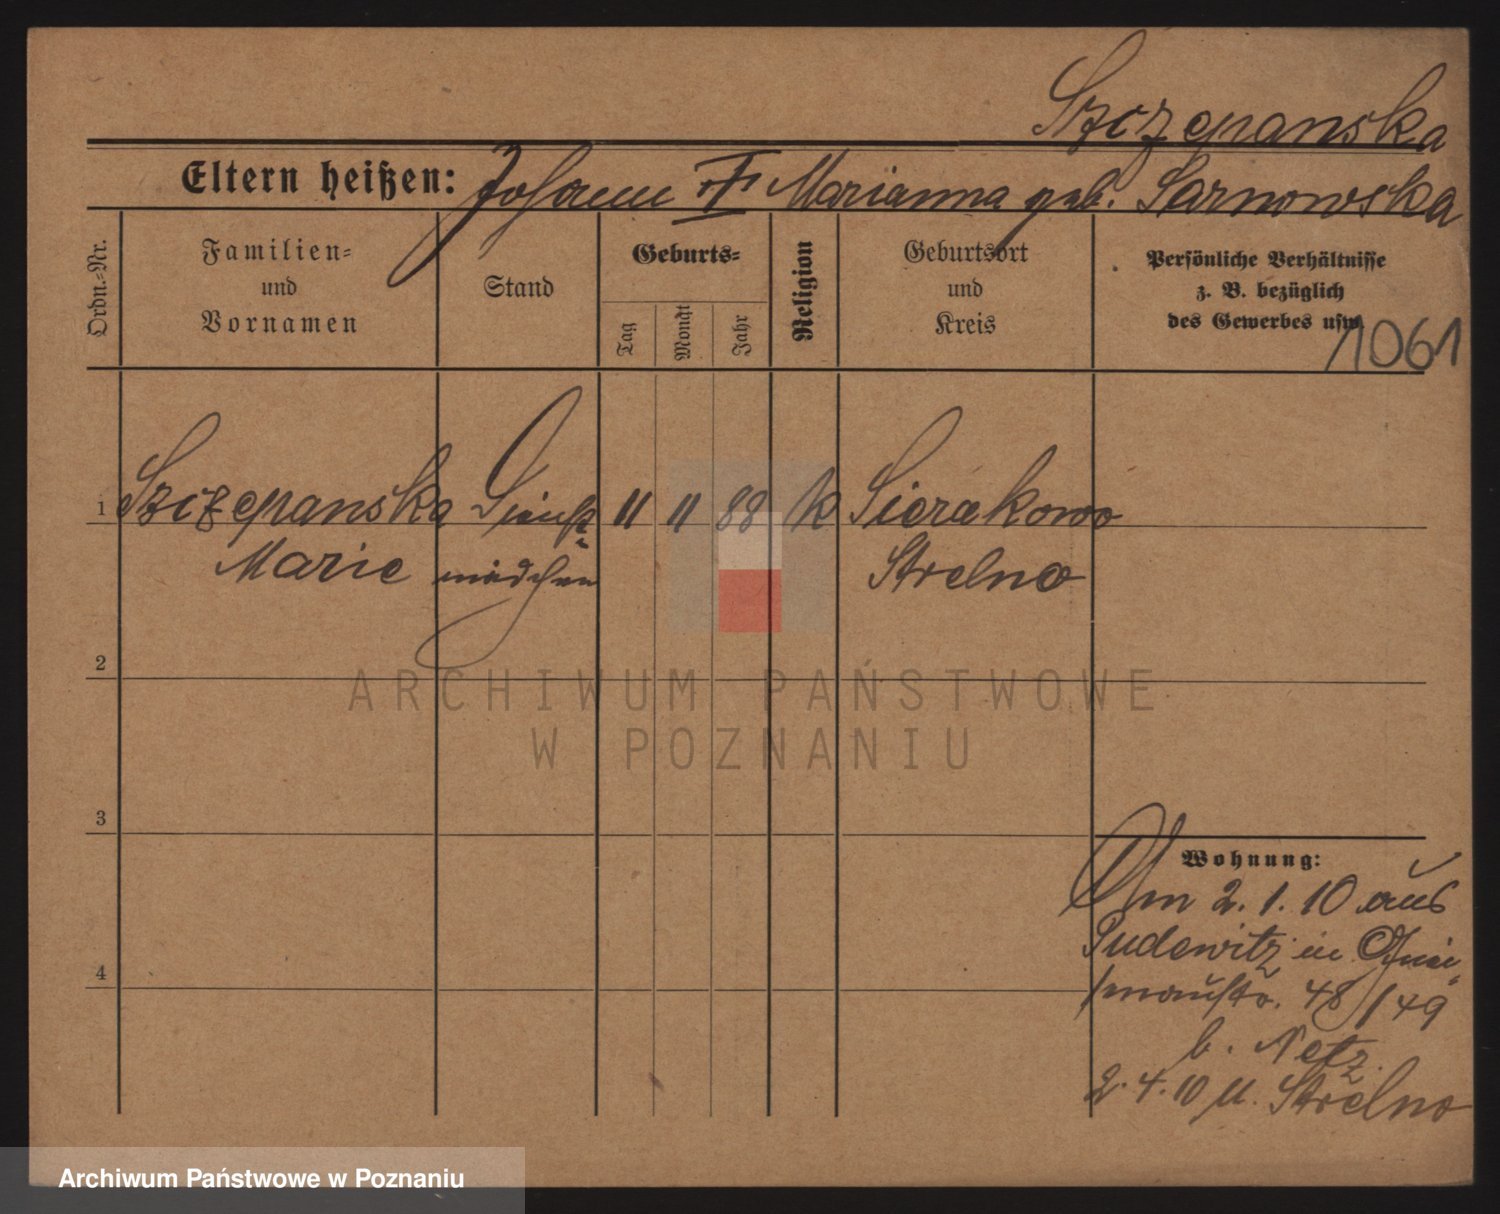 Szczepanska
Eltern heißen: Johann Marianna geb. Sarnowska
Ordn.-Nr.
Familien-
und
Vornamen
Stand
Geburts-
Tag
Monat
Jahr
Religion
Geburtsort
und
Kreis
Persönliche Verhältnisse
z. B. bezüglich
des Gewerbes usw.
1061
1 Szczepanska Dienst- 11 11 88 k Sierakowo
Marie mädchen Strelno
2
ARCHIWUM PAŃSTWOWE
W POZNANIU
3
Wohnung:
Am 2. 1. 10 aus
Pudewitz in
48/49
b. Netz.
4
2. 4. 10 u. Strelno
Archiwum Państwowe w Poznaniu